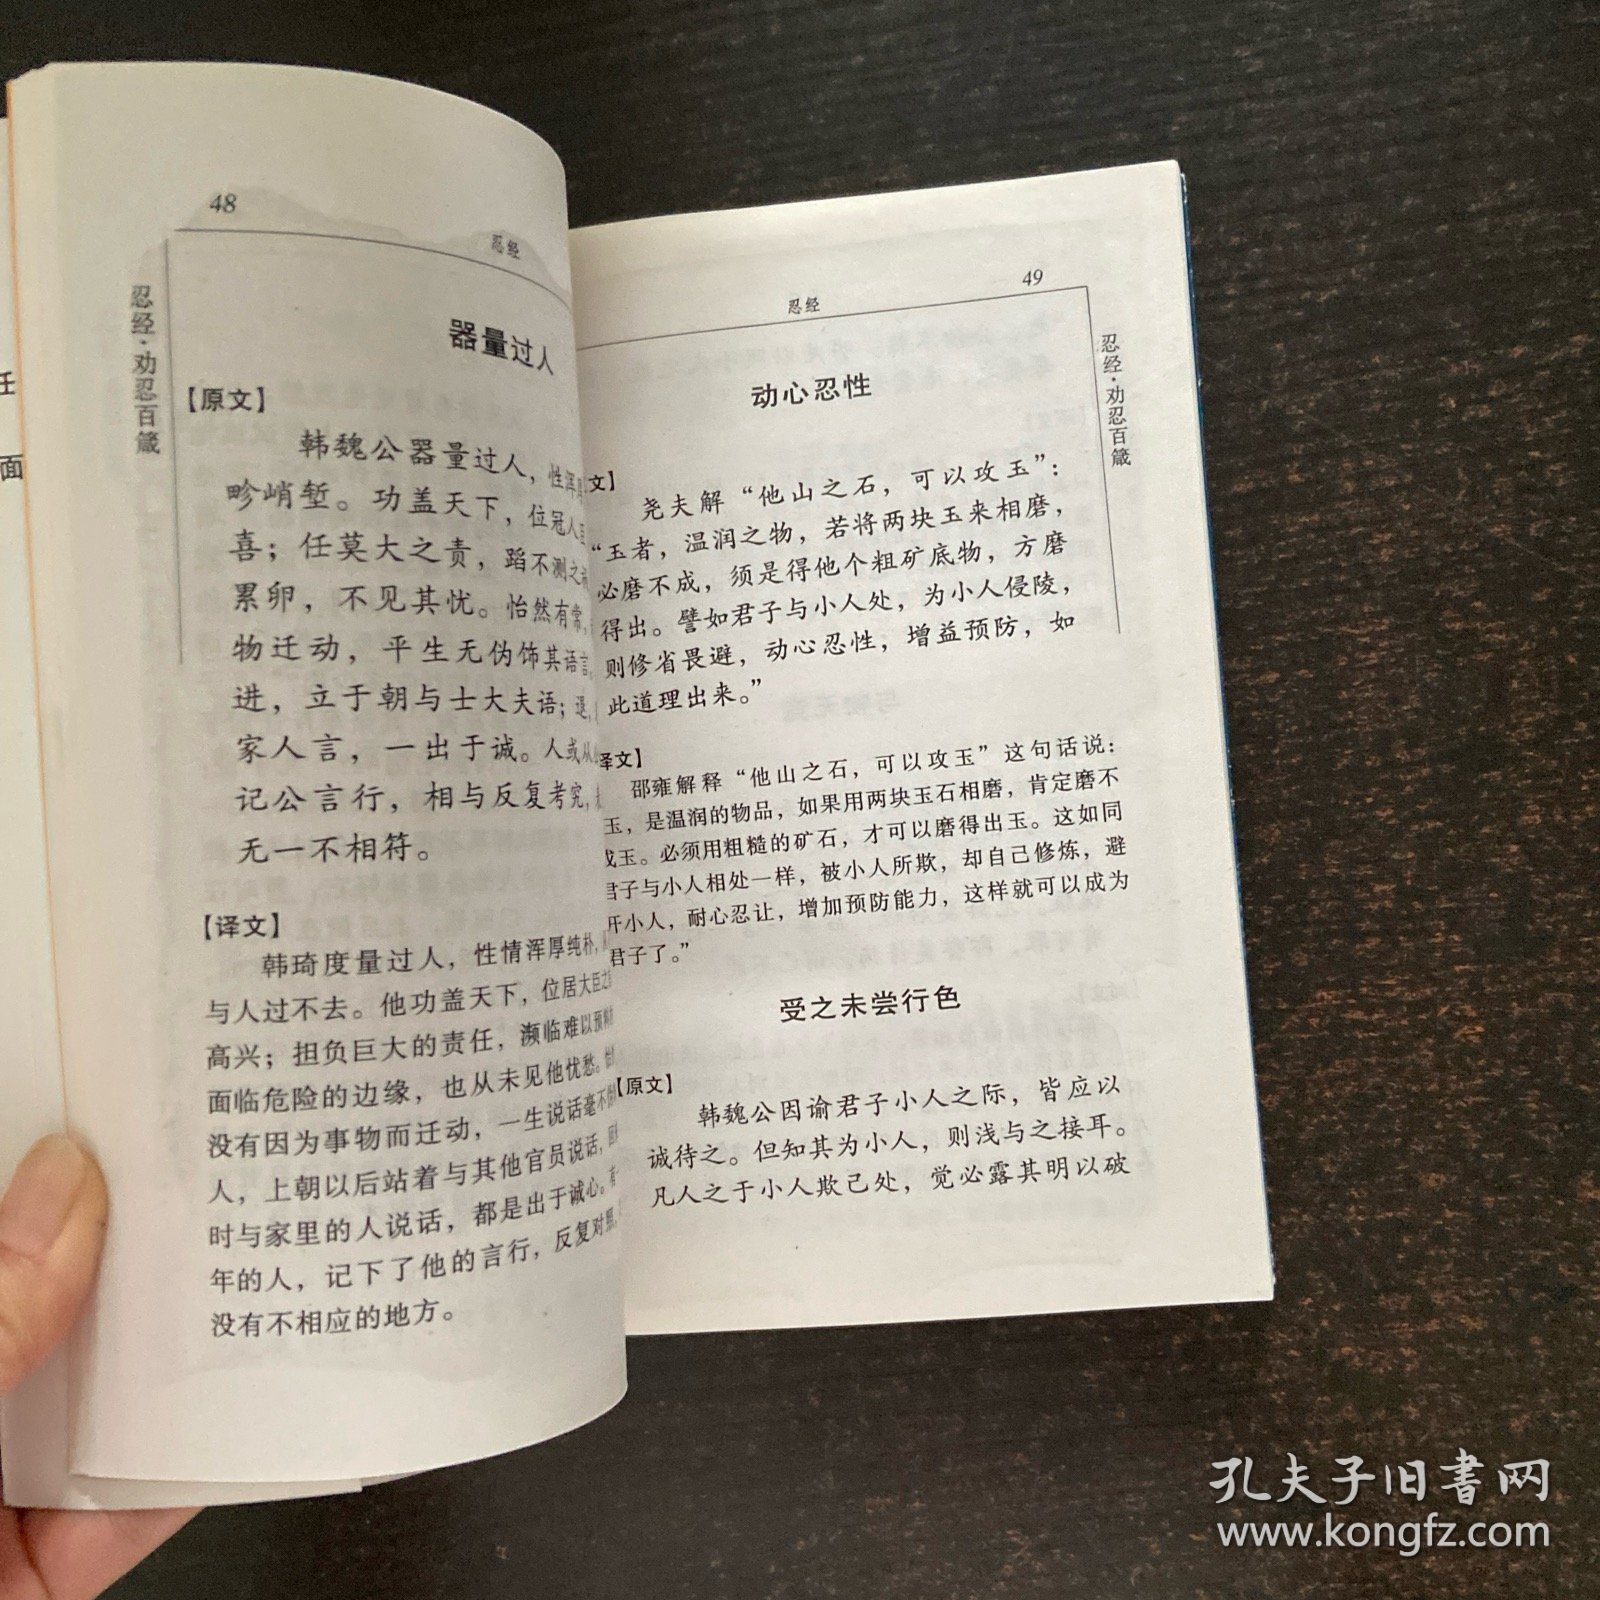 48
忍经
忍经·劝忍百箴
器量过人
【原文】
韩魏公器量过人，性浑
畛峭堑。功盖天下，位冠人
喜；任莫大之责，蹈不测之
累卵，不见其忧。怡然有常，
物迁动，平生无伪饰其语言
进，立于朝与士大夫语；退，
家人言，一出于诚。人或从
记公言行，相与反复考究，
无一不相符。
【译文】
韩琦度量过人，性情浑厚纯朴，
与人过不去。他功盖天下，位居大臣之
高兴；担负巨大的责任，濒临难以预
面临危险的边缘，也从未见他忧愁。
没有因为事物而迁动，一生说话毫不
人，上朝以后站着与其他官员说话，
时与家里的人说话，都是出于诚心。有
年的人，记下了他的言行，反复对照，
没有不相应的地方。
任
面
忍经
49
忍经·劝忍百箴
动心忍性
文】
尧夫解“他山之石，可以攻玉”：
“玉者，温润之物，若将两块玉来相磨，
必磨不成，须是得他个粗矿底物，方磨
得出。譬如君子与小人处，为小人侵陵，
则修省畏避，动心忍性，增益预防，如
此道理出来。”
译文】
邵雍解释“他山之石，可以攻玉”这句话说：
玉，是温润的物品，如果用两块玉石相磨，肯定磨不
成玉。必须用粗糙的矿石，才可以磨得出玉。这如同
君子与小人相处一样，被小人所欺，却自己修炼，避
开小人，耐心忍让，增加预防能力，这样就可以成为
君子了。”
受之未尝行色
【原文】
韩魏公因谕君子小人之际，皆应以
诚待之。但知其为小人，则浅与之接耳。
凡人之于小人欺己处，觉必露其明以破
孔夫子旧书网
www.kongfz.com